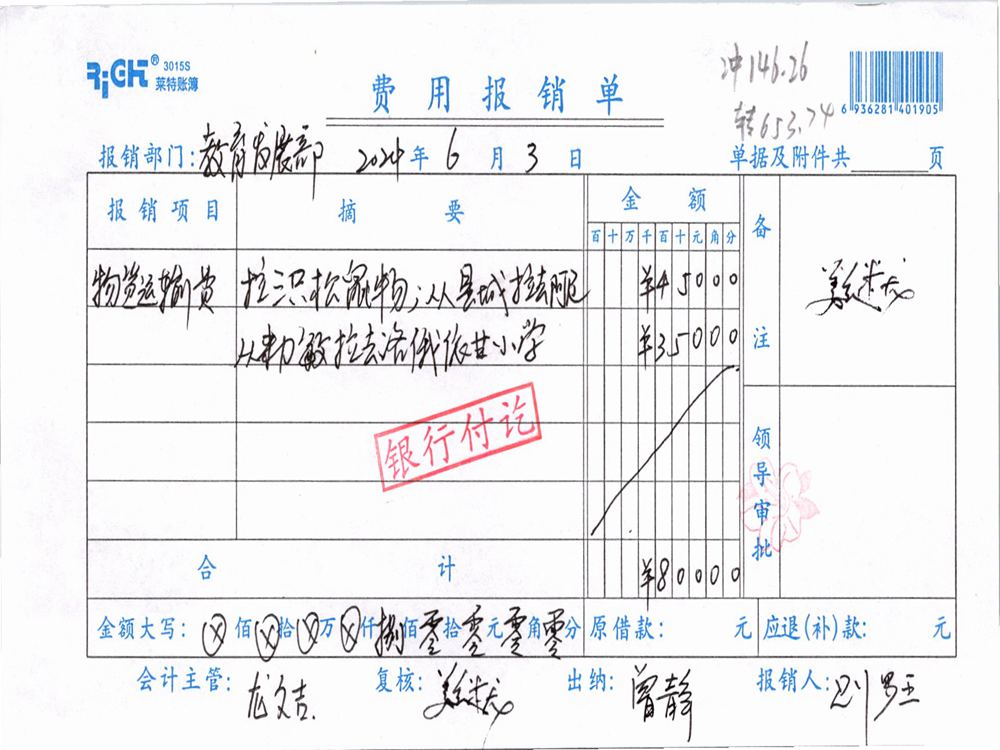 RiGHT® 3015S
莱特账簿
费用报销单
冲146.26
转653.74
6 936281 401905
报销部门:教育发展部 2024年6月3日 单据及附件共 页
报销项目 摘要 金额 备注
百十万千百十元角分
物资运输费 拉三只松鼠物;从县城拉去阿尼 ¥45000
从勒敏拉去洛俄依甘小学 ¥35000
银行付讫
领导审批
合计 ¥80000
金额大写:ⓧ佰ⓧ拾ⓧ万ⓧ仟捌佰零拾零元零角零分 原借款: 元 应退(补)款: 元
会计主管:龙文吉 复核: 出纳:曾静 报销人: